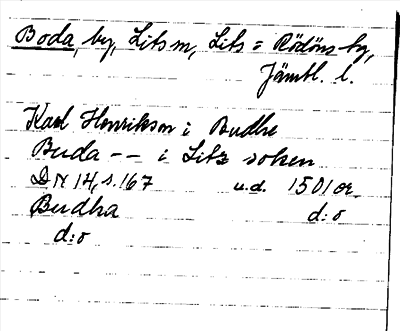 Boda, by, Lits sn, Lits = Rödöns tg,
Jämtl. l.
Karl Henrikson i Budhe
Buda -- i Litz soken
DN 14, s. 167 u.d. 1501 or.
Budha d:o
d:o